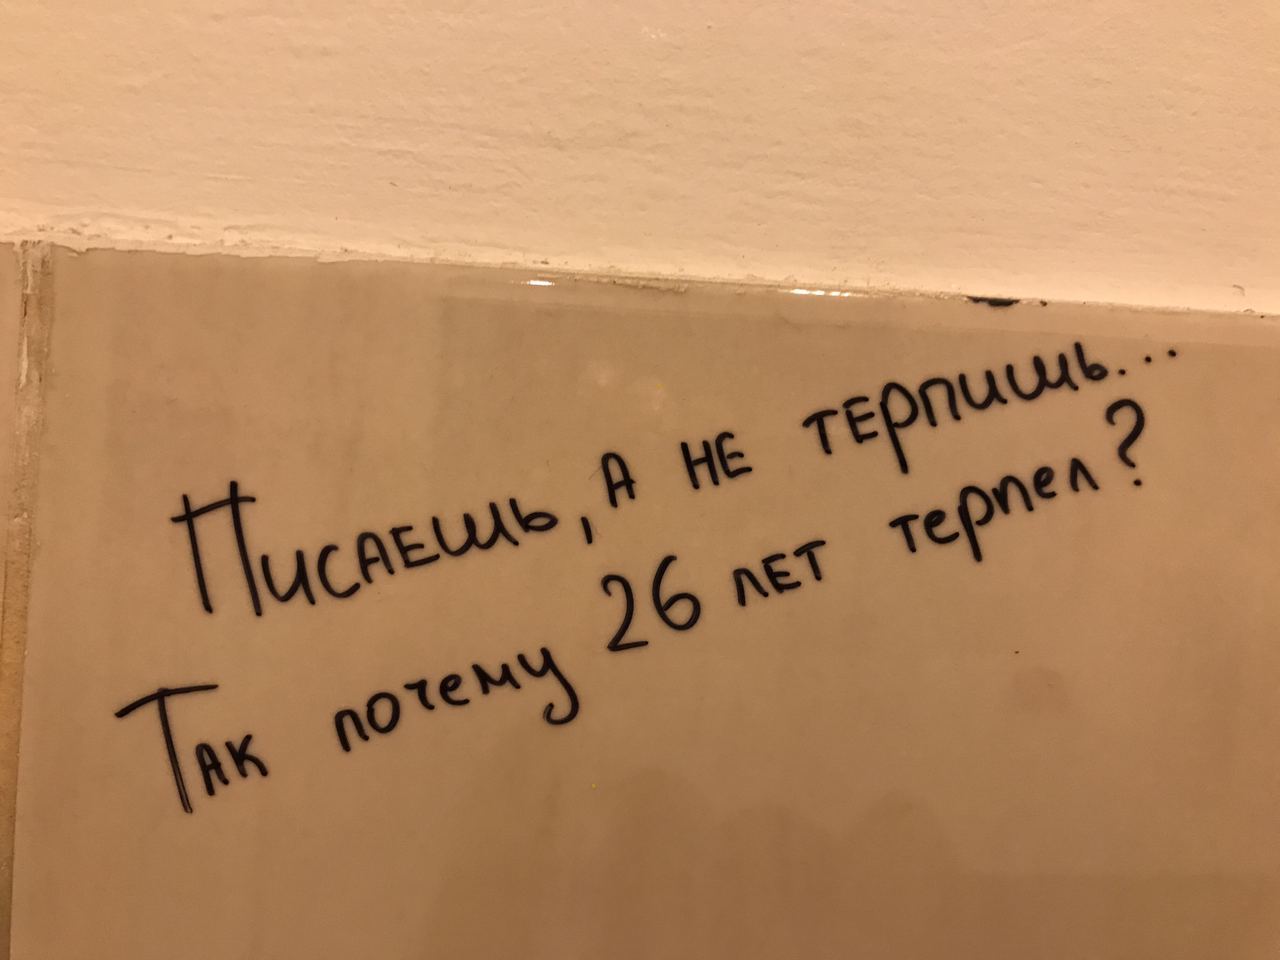 Писаешь, а не терпишь...
Так почему 26 лет терпел?